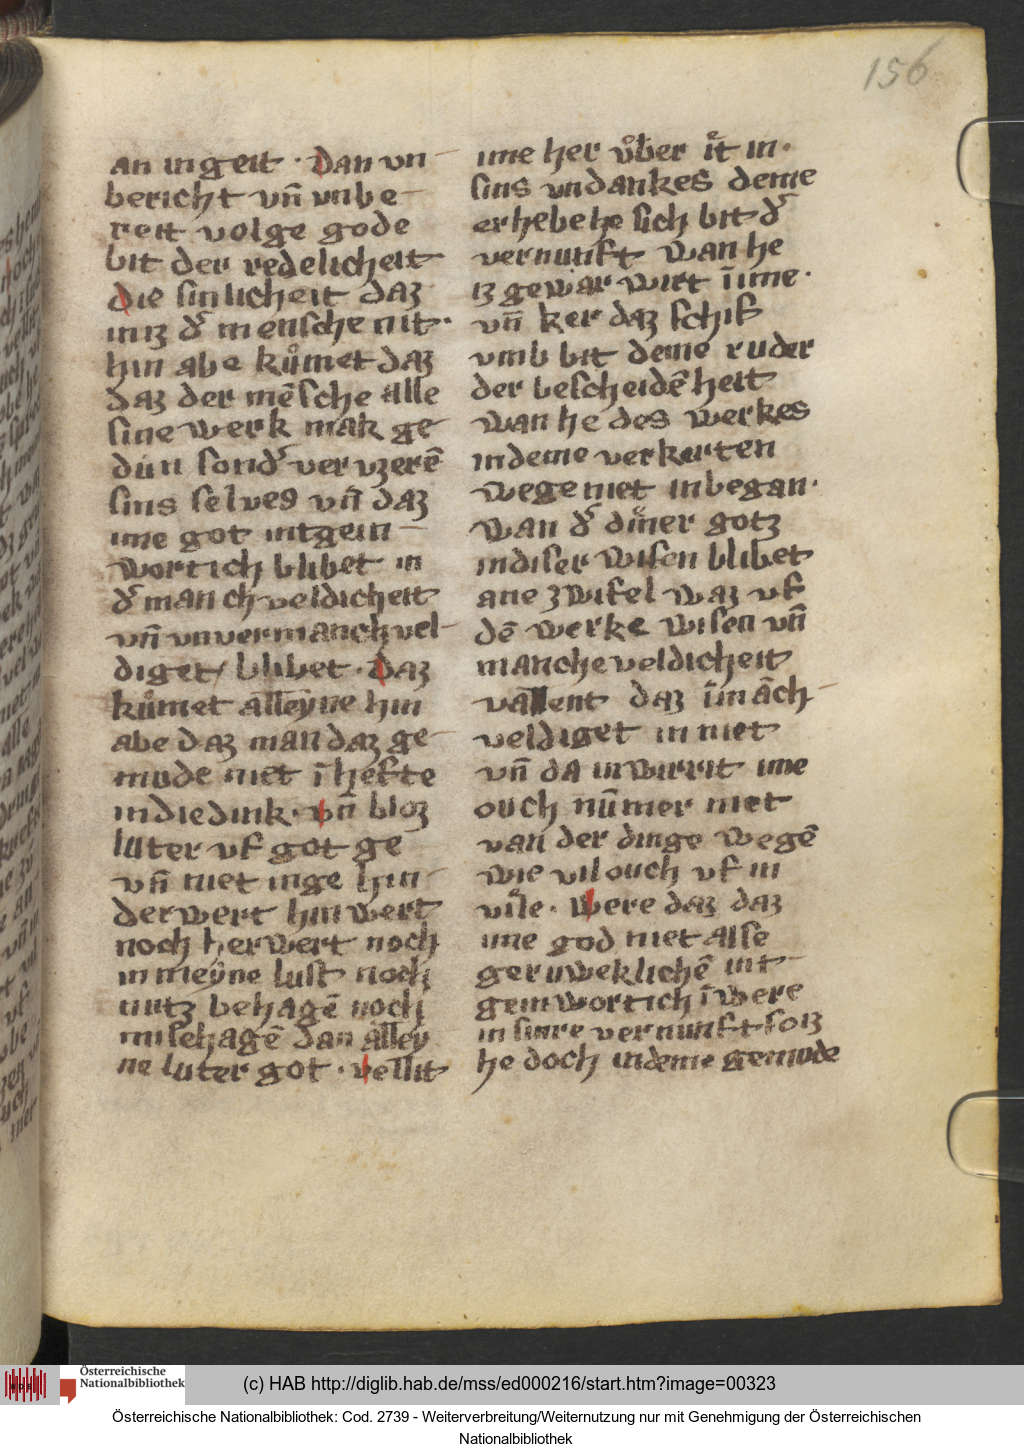 156
an in geit · Dan vn
bericht vn̄ vnbe
reit volge gode
bit der redelicheit
die sinlicheit daz
in iz d͛ mensche nit·
hin abe kůmet daz
daz der mēsche alle
sine werk mak ge
dun sond͛ ver vzerē
sins selves vn̄ daz
ime got intgein
wortich blibet in
d͛ manch veldicheit
vn̄ vnvermanch vel
diget / blibet · Daz
kůmet alleyne hin
abe daz man daz ge
mude niet ī hefte
in die dink · vn̄ bloz
luter vf got ge
vn̄ niet inge hin
derwert hin wert
noch her wert noch
in meyne lust noch
nutz behagē noch
mishagē dan alley
ne luter got · vellit
ime her vͦber it in·
sins vndankes deme
er hebe he sich bit d͛
vernunft wan he
iz gewar wirt ī ime·
vn̄ ker daz schif
vmb bit deme ruder
der bescheidēheit
wan he des werkes
in deme verkarten
wege niet inbegan·
wan d͛ diner gotz
in diser wisen blibet
ane zwifel waz vf
dē werke wisen vn̄
manche veldicheit
vallent daz im ach
veldiget in niet
vn̄ da in wirrit ime
ouch nūmer niet
van der dinge wegē
wie vil ouch vf in
vile · Were daz daz
ime god niet alse
geruweklichē int
geinwortich ī were
in sinre vernunft so iz
he doch in deme gemude
Österreichische
Nationalbibliothek
(c) HAB http://diglib.hab.de/mss/ed000216/start.htm?image=00323
Österreichische Nationalbibliothek: Cod. 2739 - Weiterverbreitung/Weiternutzung nur mit Genehmigung der Österreichischen
Nationalbibliothek